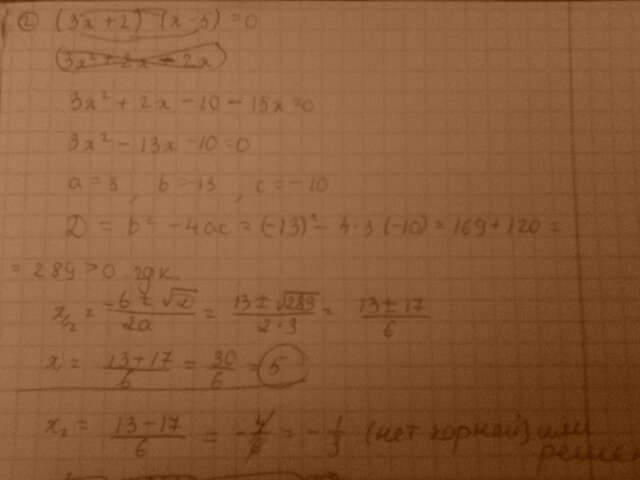 ② (3x+2)(x-5)=0
3x² + 2x - 10 - 15x = 0
3x² - 13x - 10 = 0
a = 3, b = -13, c = -10
D = b² - 4ac = (-13)² - 4·3(-10) = 169 + 120 =
= 289 > 0 2дк.
x₁/₂ = (-b ± √D)/2a = (13 ± √289)/2·3 = (13 ± 17)/6
x = (13+17)/6 = 30/6 = 5
x₂ = (13-17)/6 = -4/6 = -1/3 (нет корней) или
решен